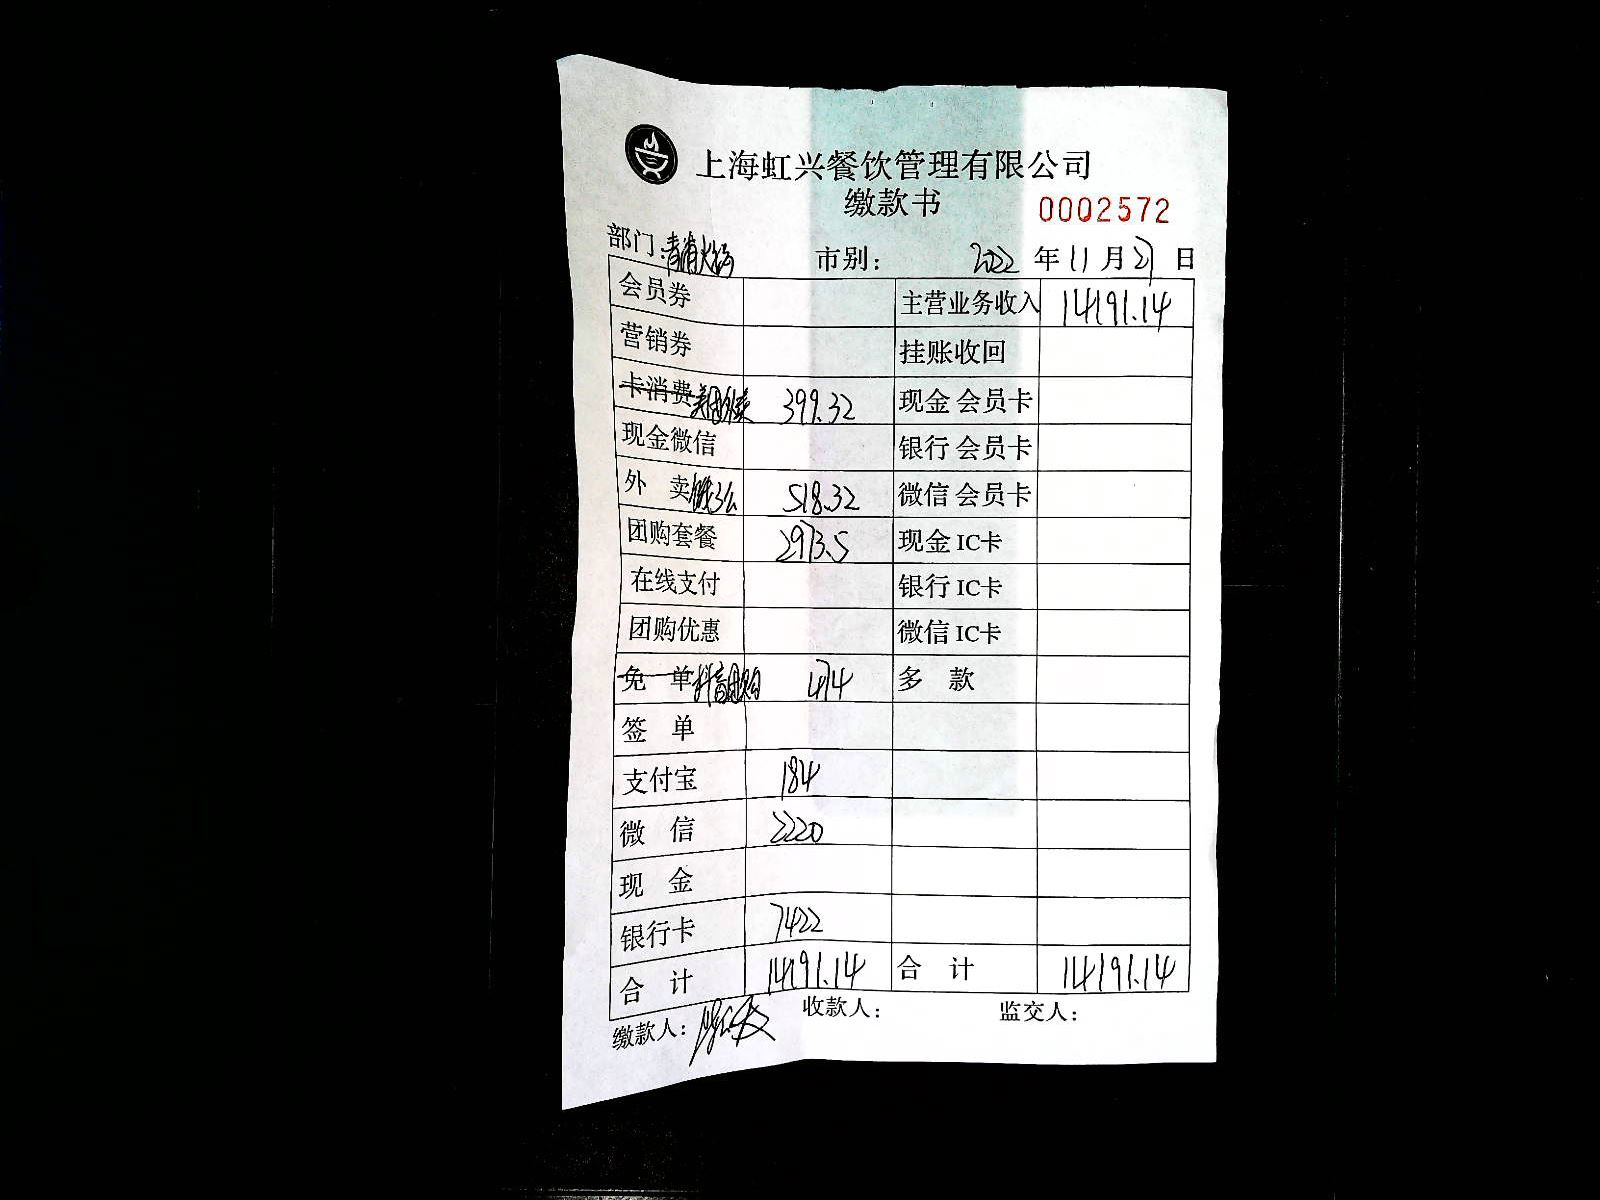 上海虹兴餐饮管理有限公司
缴款书
0002572
部门: 火锅 市别: 2022 年 11 月 27 日
会员券 主营业务收入 14191.14
营销券 挂账收回
卡消费 美团外卖 399.32 现金 会员卡
现金微信 银行 会员卡
外 卖 饿了么 518.32 微信 会员卡
团购套餐 2973.5 现金 IC卡
在线支付 银行 IC卡
团购优惠 微信 IC卡
免 单 抖音团购 474 多 款
签 单
支付宝 184
微 信 2220
现 金
银行卡 7422
合 计 14191.14 合 计 14191.14
缴款人: 收款人: 监交人: